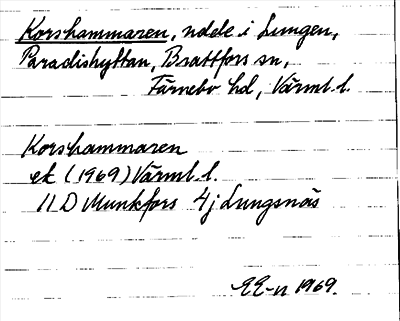 Korshammaren, udde i Lungen,
Paradishyttan, Brattfors sn,
Färnebo hd, Värml. l.
Korshammaren
ek (1969) Värml. l.
11 D Munkfors 4j Lungsnäs
EE-n 1969.